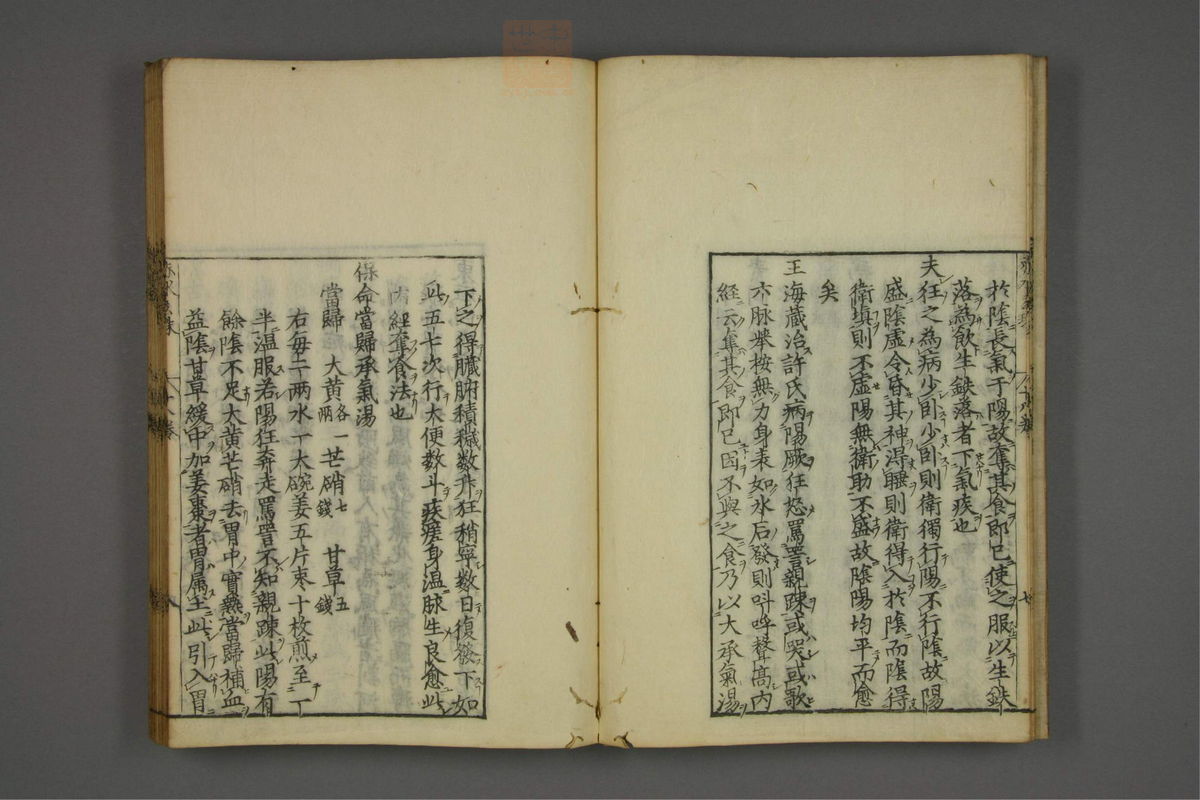 於陰長氣于陽故奪其食即已使之服以生鉄
落為飲生鉄落者下氣疾也
夫狂之為病少卧少卧則衛獨行陽不行陰故陽
盛陰虛令昏其神得睡則衛得入於陰而陰得
衛填則不虛陽無衛助不盛故陰陽均平而愈
矣
王海藏治許氏病陽厥狂怒罵詈親踈或哭或歌
六脉舉按無力身表如氷后發則呌呼聲高内
經云奪其食即已因不與之食乃以大承氣湯
下之得臟腑積穢数升狂稍寧数日復發下如
此五七次行大便数斗疾瘥身温脉生良愈此
内經奪食法也
保命當歸承氣湯
當歸 大黄各一两 芒硝七錢 甘草五錢
右每二两水一大碗姜五片枣十枚煎至一
半温服若陽狂奔走罵詈不知親踈此陽有
餘陰不足大黄芒硝去胃中實熱當歸補血
益陰甘草緩中加姜棗者胃属土此引入胃